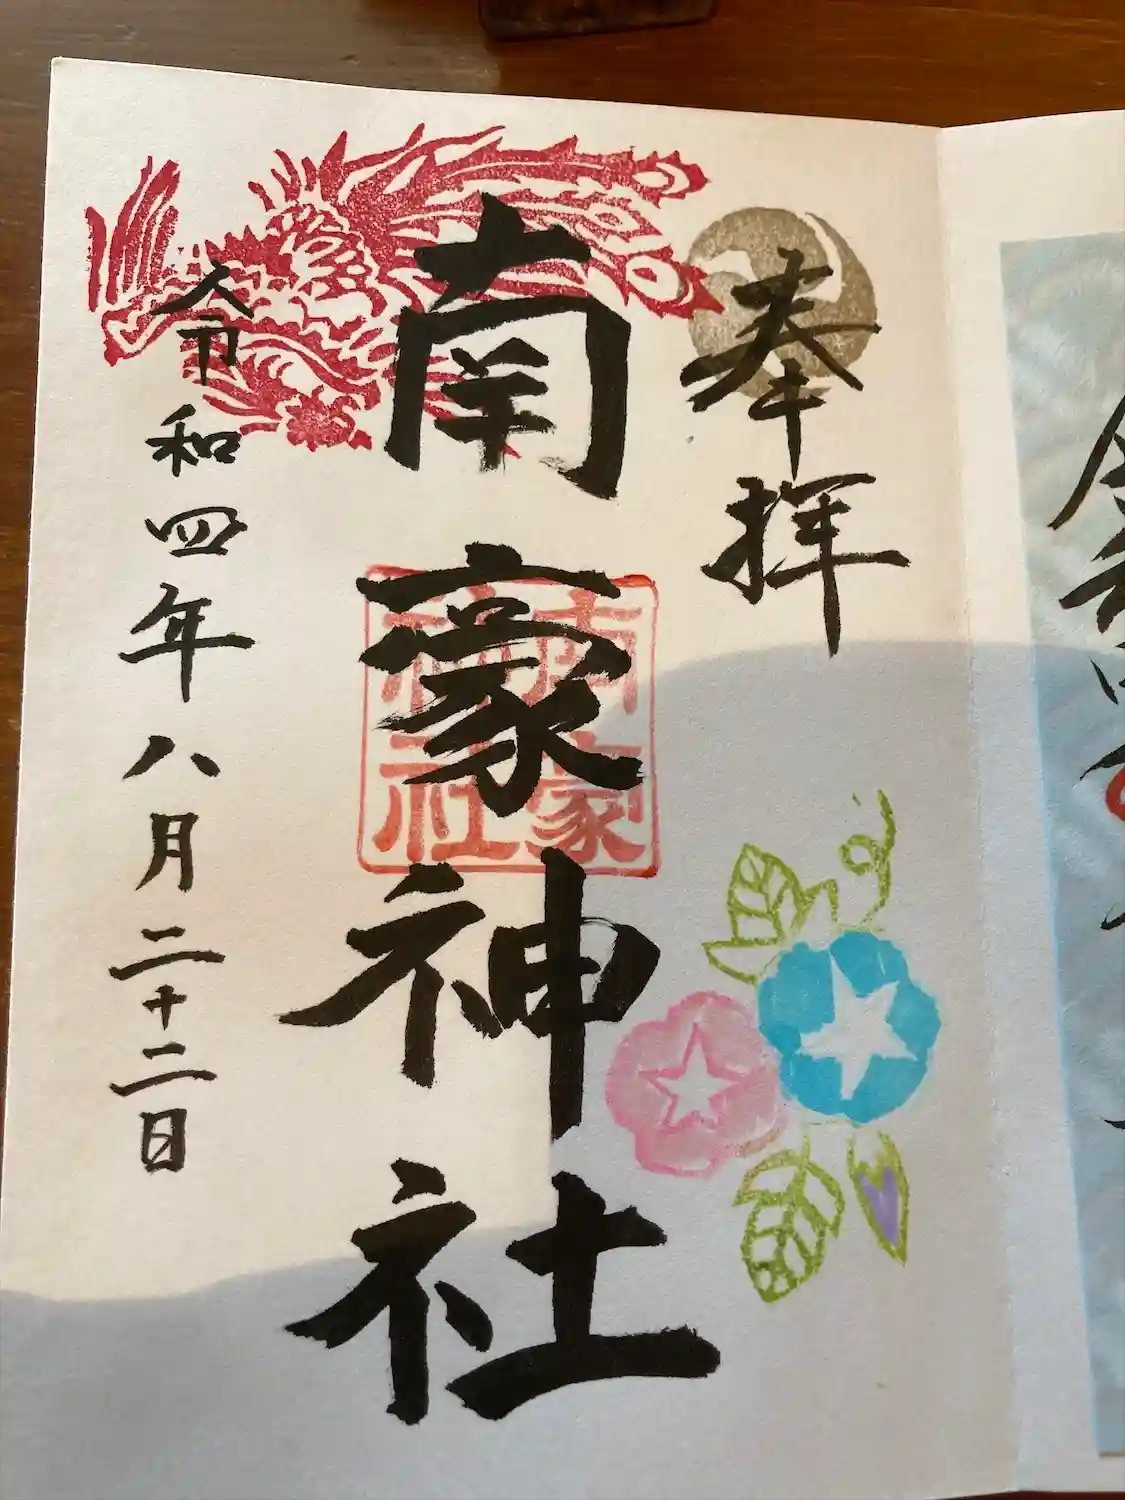 奉拝
南豪神社
南豪
神社
令和四年八月二十二日